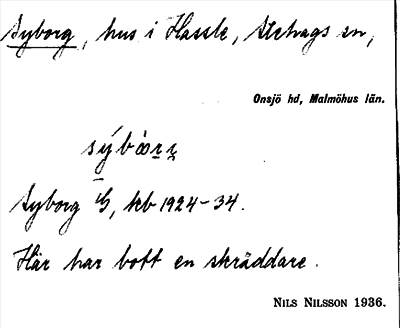 Syborg, hus i Hassle, Stehags sn,
Onsjö hd, Malmöhus län.
Syborg, kb 1924-34.
Här har bott en skräddare.
NILS NILSSON 1936.